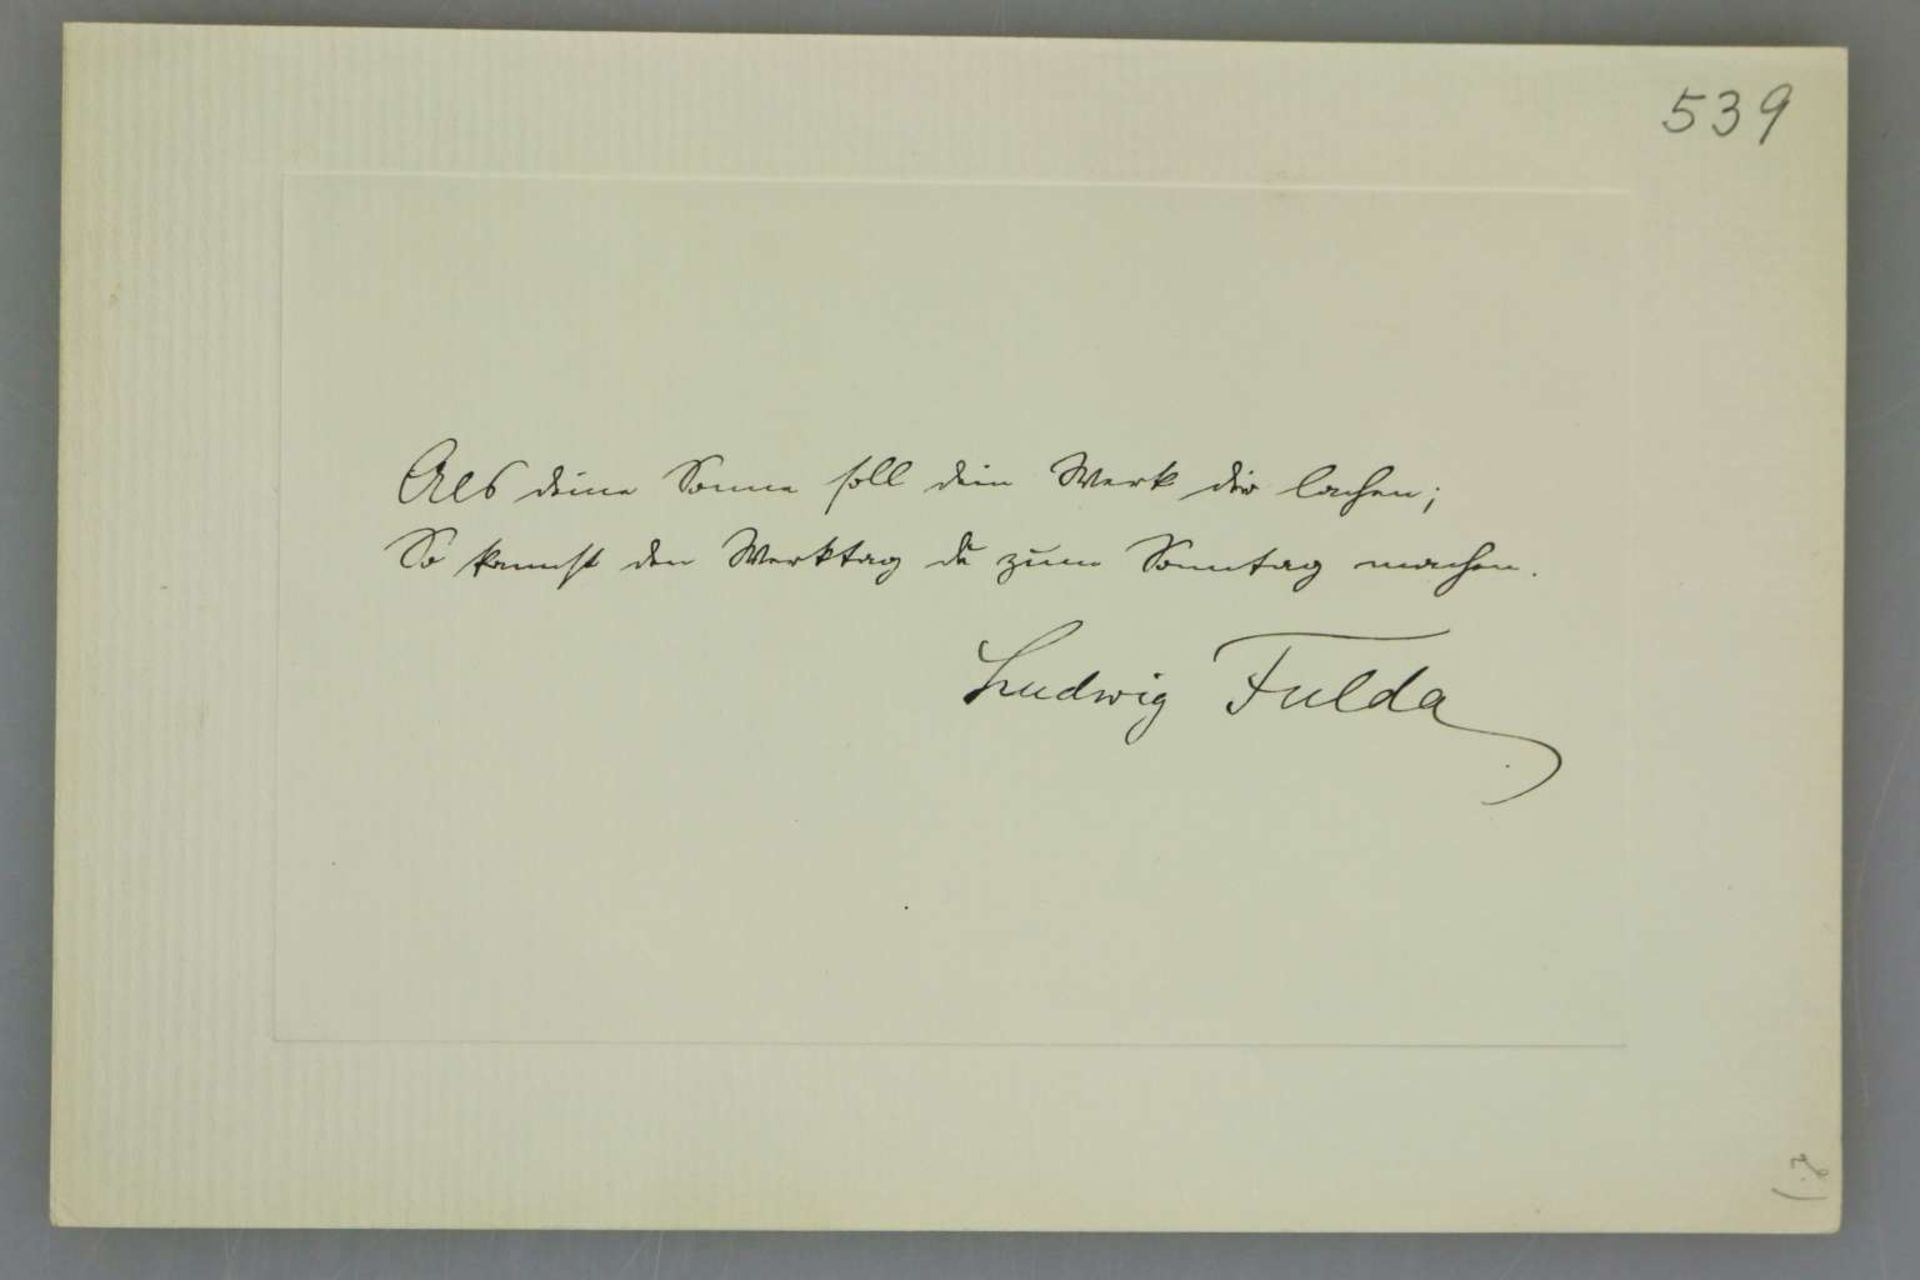 539
Als deine Sonne soll dein Werk dir lachen;
So kannst den Werktag du zum Sonntag machen.
Ludwig Fulda